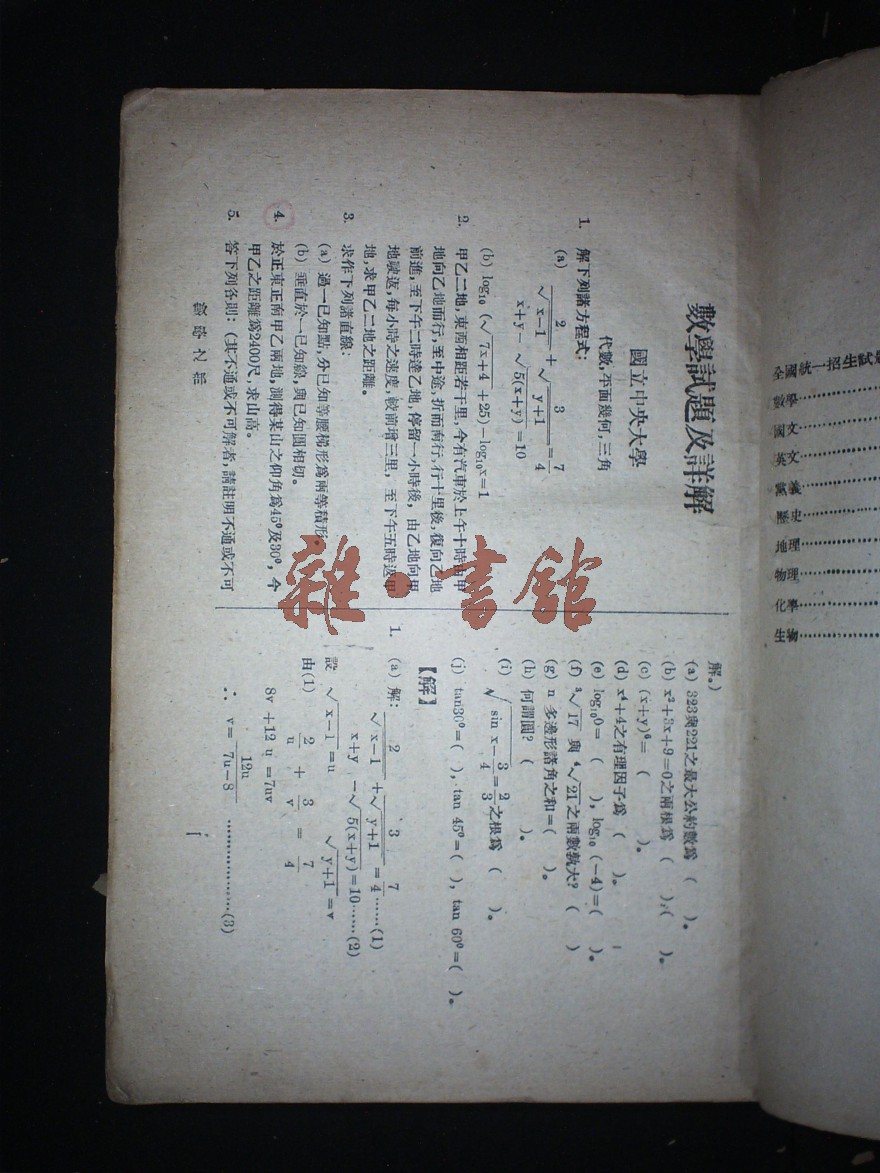 數學試題及詳解
國立中央大學
代數,平面幾何,三角
1. 解下列諸方程式:
(a) 2/√(x-1) + 3/√(y+1) = 7/4
x+y-√5(x+y)=10
(b) log₁₀(√(7x+4)+25)-log₁₀x=1
2. 甲乙二地,東西相距若干里,今有汽車於上午十時由甲
地向乙地而行,至中途,折而南行,行十里後,復向乙地
前進,至下午二時達乙地,停留一小時後,由乙地向甲
地駛返,每小時之速度,較前增三里,至下午五時返甲
地,求甲乙二地之距離。
3. 求作下列諸直線:
(a) 過一已知點,分已知等腰梯形爲兩等積形。
(b) 垂直於一已知線,與已知圓相切。
4. 於正東正南甲乙兩地,測得某山之仰角爲45°及30°,今
甲乙之距離爲2400尺,求山高。
5. 答下列各則:(其不通或不可解者,請註明不通或不可
解。)
(a) 323與221之最大公約數爲( )。
(b) x²+3x+9=0之兩根爲( ),( )。
(c) (x+y)⁶=( )。
(d) x⁴+4之有理因子爲( )。
(e) log₁₀0=( ), log₁₀(-4)=( )。
(f) ³√17 與 ⁴√21 之兩數孰大?( )
(g) n 多邊形諸角之和=( )。
(h) 何謂圓?( )。
(i) √(sin x-3/4)=2/3之根爲( )。
(j) tan30°=( ), tan 45°=( ), tan 60°=( )。
【解】
1. (a) 解: 2/√(x-1) + 3/√(y+1) = 7/4……(1)
x+y-√5(x+y)=10……(2)
設 √(x-1)=u √(y+1)=v
由(1) 2/u + 3/v = 7/4
8v+12u=7uv
∴ v=12u/(7u-8)…………………(3)
全國統一招生試
數學
國文
英文
黨義
歷史
地理
物理
化學
生物
雜·書館